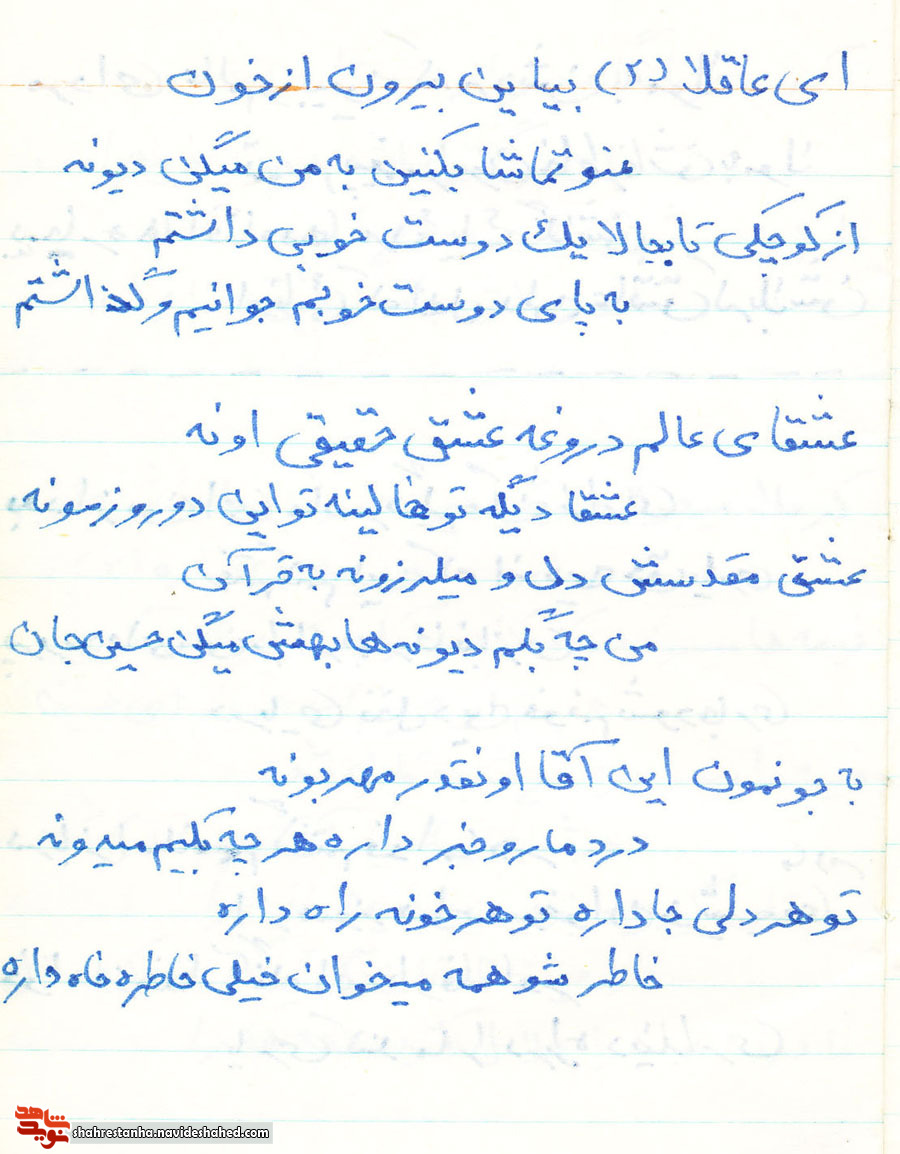 ای عاقلا (۲) بیاین بیرون از خون
منو تماشا بکنین به من میگن دیونه
از کوچکی تا بحالا یک دوست خوبی داشتم
به پای دوست خوبم جوانیم و گذاشتم
عشقای عالم دروغه عشق حقیقی اونه
عشقا دیگه تو خالینه تو این دو روز مونه
عشق مقدسش دل و میلرزونه به قرآن
من چه بگم دیونه ها بهش میگن حسین جان
به جونمون این آقا اونقدر مهربونه
درد ما رو خبر داره هر چه بگیم میدونه
تو هر دلی جا داره تو هر خونه راه داره
خاطر شو همه میخوان خیلی خاطره خاه داره
شاهد
نوید
shahrestanha.navideshahed.com